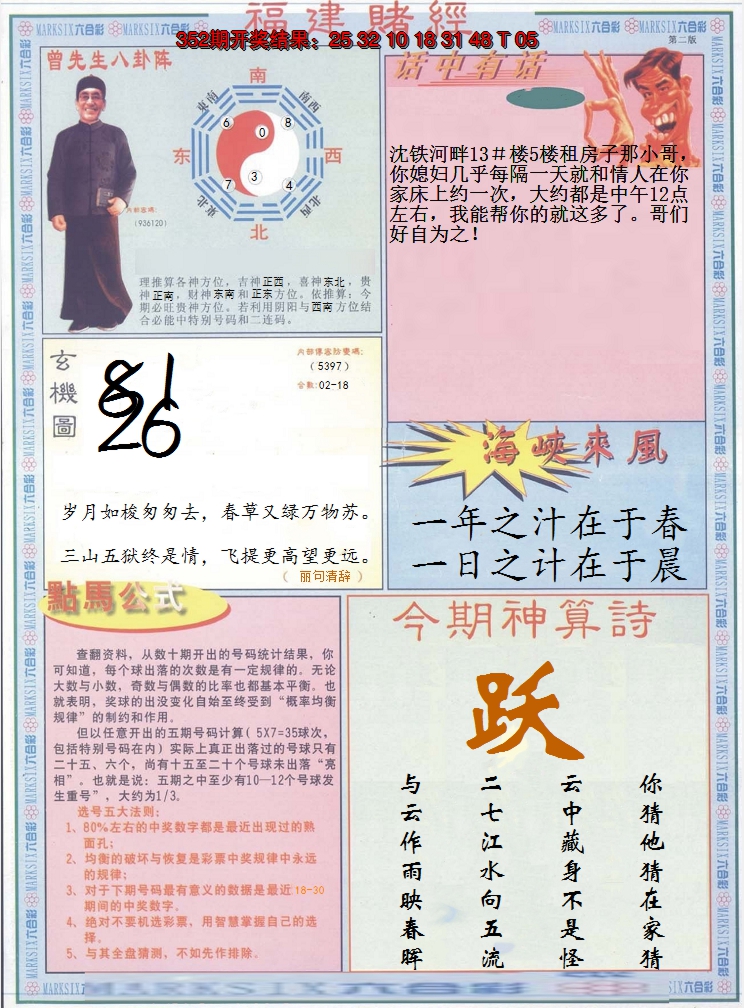 福建賭經
MARKSIX六合彩
352期开奖结果：25 32 10 18 31 48 T 05
第二版
曾先生八卦阵
南
东南
西南
6
8
0
东
西
3
7
4
东北
西北
北
内部密碼：
（936120）
理推算各神方位，吉神正西，喜神东北，贵
神正南，财神东南和正东方位。依推算：今
期必旺贵神方位。若利用阴阳与西南方位结
合必能中特别号码和二连码。
话中有话
沈铁河畔13＃楼5楼租房子那小哥，
你媳妇几乎每隔一天就和情人在你
家床上约一次，大约都是中午12点
左右，我能帮你的就这多了。哥们
好自为之！
玄機圖
81
26
（5397）
合数:02-18
岁月如梭匆匆去，春草又绿万物苏。
三山五狱终是情，飞提更高望更远。
（ 丽句清辞 ）
海峽來風
一年之汁在于春
一日之计在于晨
點馬公式
查翻资料，从数十期开出的号码统计结果，你
可知道，每个球出落的次数是有一定规律的。无论
大数与小数，奇数与偶数的比率也都基本平衡。也
就表明，奖球的出没变化自始至终受到“概率均衡
规律”的制约和作用。
但以任意开出的五期号码计算( 5X7=35球次，
包括特别号码在内) 实际上真正出落过的号球只有
二十五、六个，尚有十五至二十个号球未出落“亮
相”。也就是说：五期之中至少有10—12个号球发
生重号”，大约为1/3。
选号五大法则：
1、80%左右的中奖数字都是最近出现过的熟
面孔；
2、均衡的破坏与恢复是彩票中奖规律中永远
的规律；
3、对于下期号码最有意义的数据是最近18-30
期间的中奖数字。
4、绝对不要机选彩票，用智慧掌握自己的选
择。
5、与其全盘猜测，不如先作排除。
今期神算詩
跃
你猜他猜在家猜
云中藏身不是怪
二七江水向五流
与云作雨映春晖